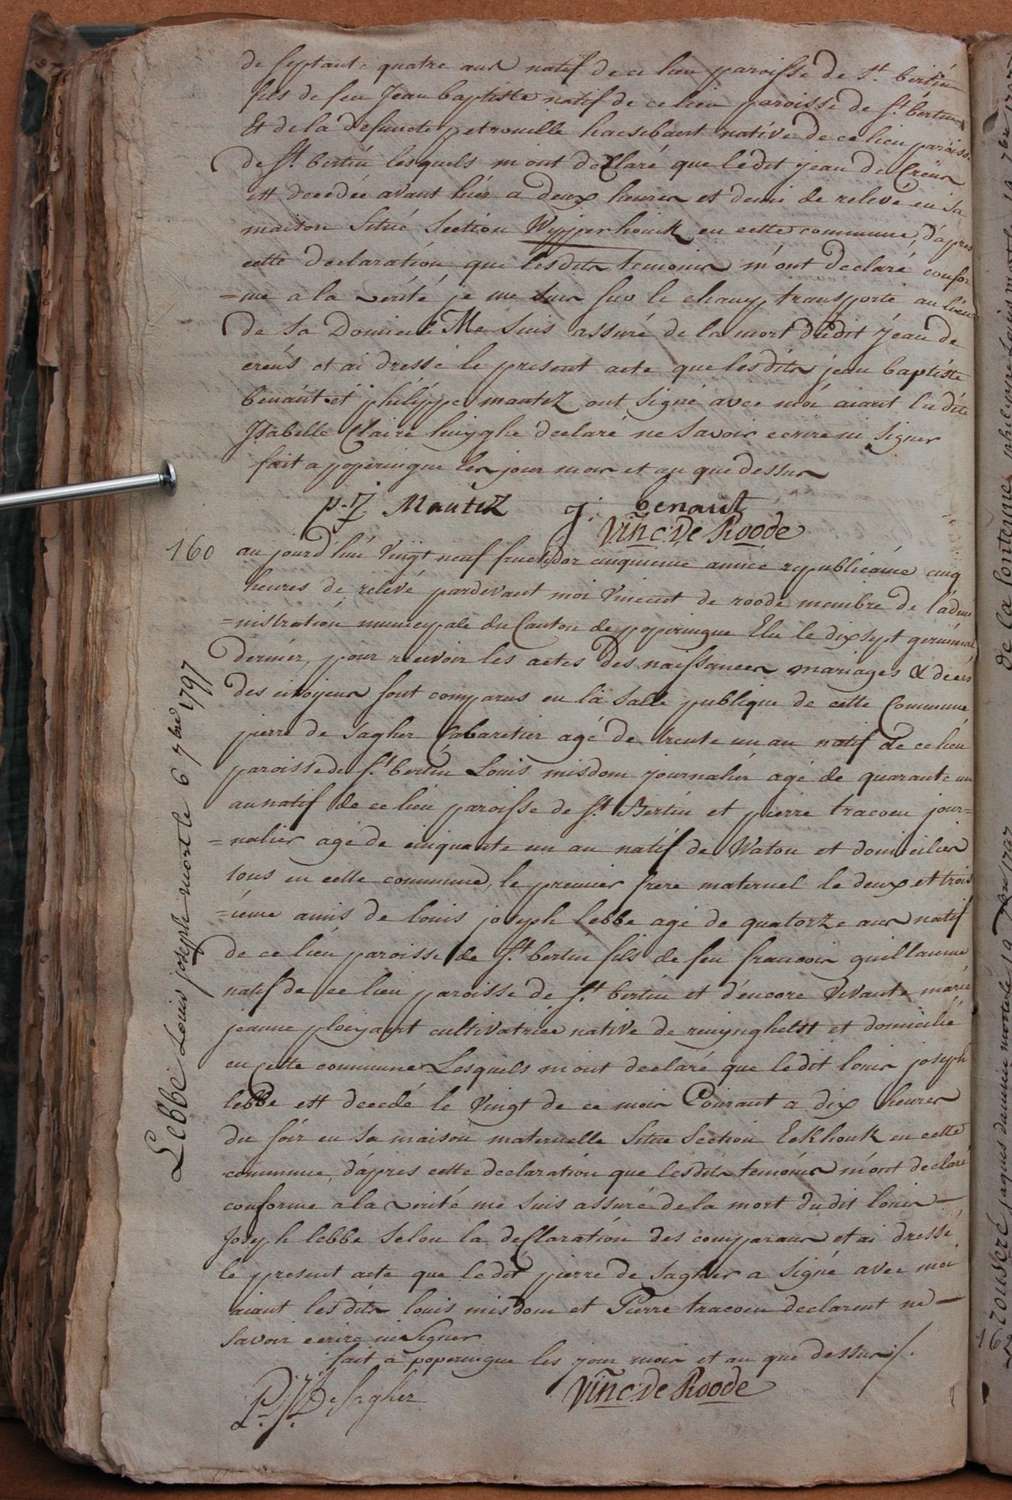 de septante quatre ans natif de ce lieu paroisse de St. bertin
fils de feu Jean baptiste natif de ce lieu paroisse de St. bertin
Et de la defuncte petronille haesebaert native de ce lieu paroisse
de St. bertin lesquels m'ont declaré que ledit jean de Creus
est decedee avant hier a deux heures et demi de relevé en sa
maison situé Section Wypperhouck en cette commune, d'apres
cette declaration que lesdits temoins m'ont declaré confor
=me a la verité je me suis sur le champ transporté au lieu
de sa Domicile Me suis assuré de la mort dudit jean de
creus et ai dressé le present acte que lesdits jean baptiste
benaut et philippe mantez ont signé avec moi aiant ladite
Isabelle Claire huyghe declaré ne savoir ecrire ni signer
fait a poperingue les jour mois et an que dessus
p. J. Mantez J. benaut
Vinc: De Roode
160 au jourd'hui Vingt neuf fructidor cinquieme année republicaine cinq
heures de relevé pardevant moi Vincent de roode membre de l'admi
=nistration municipale du Canton de poperingue Elu le dix sept germinal
dernier, pour recevoir les actes Des naissances mariages & deces
des citoyens sont comparus en la salle publique de cette Commune
pierre de Sagher Cabaretier agé de trente un an natif de ce lieu
paroisse de St. bertin Louis misdom journalier agé de quarante un
an natif de ce lieu paroisse de St. Bertin et pierre tracoen jour=
=nalier agé de cinquante un an natif de Watou et domicilier
tous en cette commune, le premier frere maternel le deux et trois
=ieme amis de louis joseph lebbe agé de quatorze ans natif
de ce lieu paroisse de St. bertin fils de feu francois guillaume
natif de ce lieu paroisse de St. bertin et d'encore vivante marie
jeanne ployaert cultivatrice native de reninghelst et domicilié
en cette commune Lesquels m'ont declaré que ledit louis joseph
lebbe est decedé le Vingt de ce mois Courant a dix heures
du soir en sa maison maternelle Situé Section Eekhouk en cette
commune, d'apres cette declaration que lesdits temoins m'ont declaré
conforme a la verité me suis assuré de la mort dudit louis
Joseph lebbe selon la declaration des comparans et ai dressé
le present acte que ledit pierre de Sagher a Signé avec moi
aiant lesdits louis misdom et Pierre tracoen declarent ne
savoir ecrire ni Signer
fait a poperingue les jour mois et an que dessus /.
P. J. De Sagher Vinc: de Roode
Lebbe Louis joseph mort le 6 7bre 1797